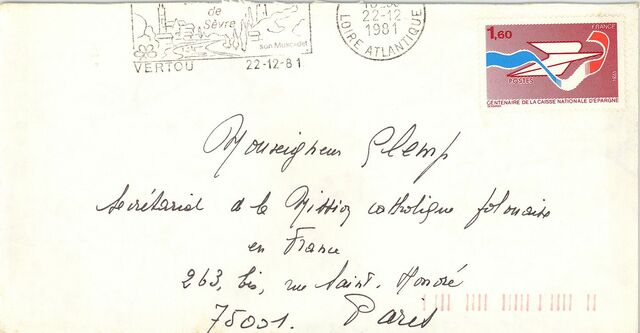 de
Sèvre
son Muscadet
VERTOU 22-12-81
22-12
1981
LOIRE ATLANTIQUE
1,60 FRANCE
POSTES
1981
CENTENAIRE DE LA CAISSE NATIONALE D'ÉPARGNE
Monseigneur Glemp
Secrétariat de la Mission catholique polonaise
en France
263, bis, rue Saint-Honoré
75001. Paris